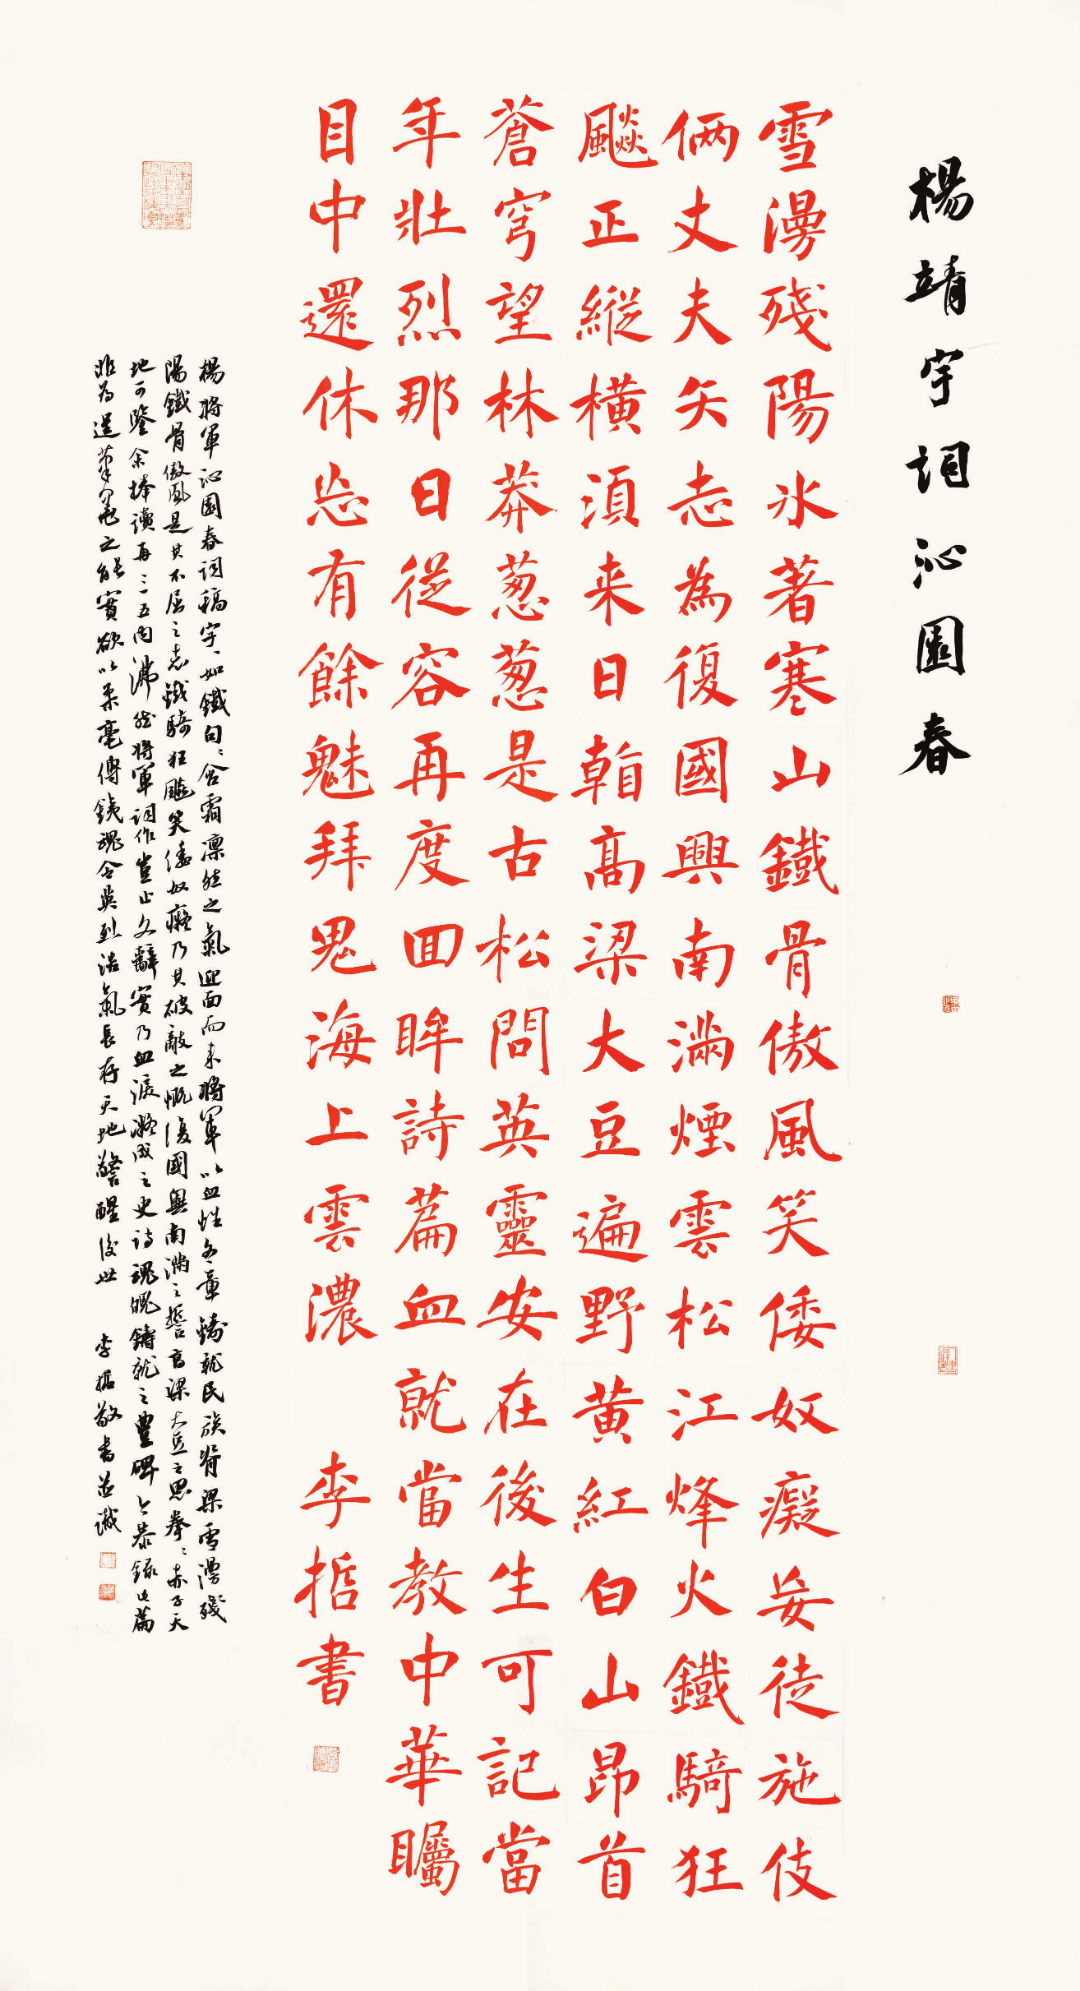 楊靖宇詞沁園春
雪漫殘陽冰著寒山鐵骨傲風笑倭奴癡妄徒施伎
倆丈夫矢志為復國興南滿煙雲松江烽火鐵騎狂
飈正縱橫須来日斬高梁大豆遍野黄紅白山昂首
蒼穹望林莽葱葱是古松問英靈安在後生可記當
年壯烈那日從容再度回眸詩篇血就當教中華矚
目中還休忘有餘魅拜鬼海上雲濃 李哲書
楊將軍沁園春詞稿字字如鐵句句含霜凛然之氣迎面而来將軍以血性文章鑄就民族脊梁雪漫殘
陽鐵骨傲風是其不屈之志鐵騎狂飈笑倭奴癡乃其破敵之慨復國興南滿之誓高梁大豆之思拳拳赤子天
地可鑒余捧讀再三五内沸然將軍詞作豈止文辭實乃血淚凝成之史詩魂魄鑄就之豐碑今恭錄此篇
非為逞筆墨之能實欲以柔毫傳鐵魂令英烈浩氣長存天地警醒後世 李哲敬書並識